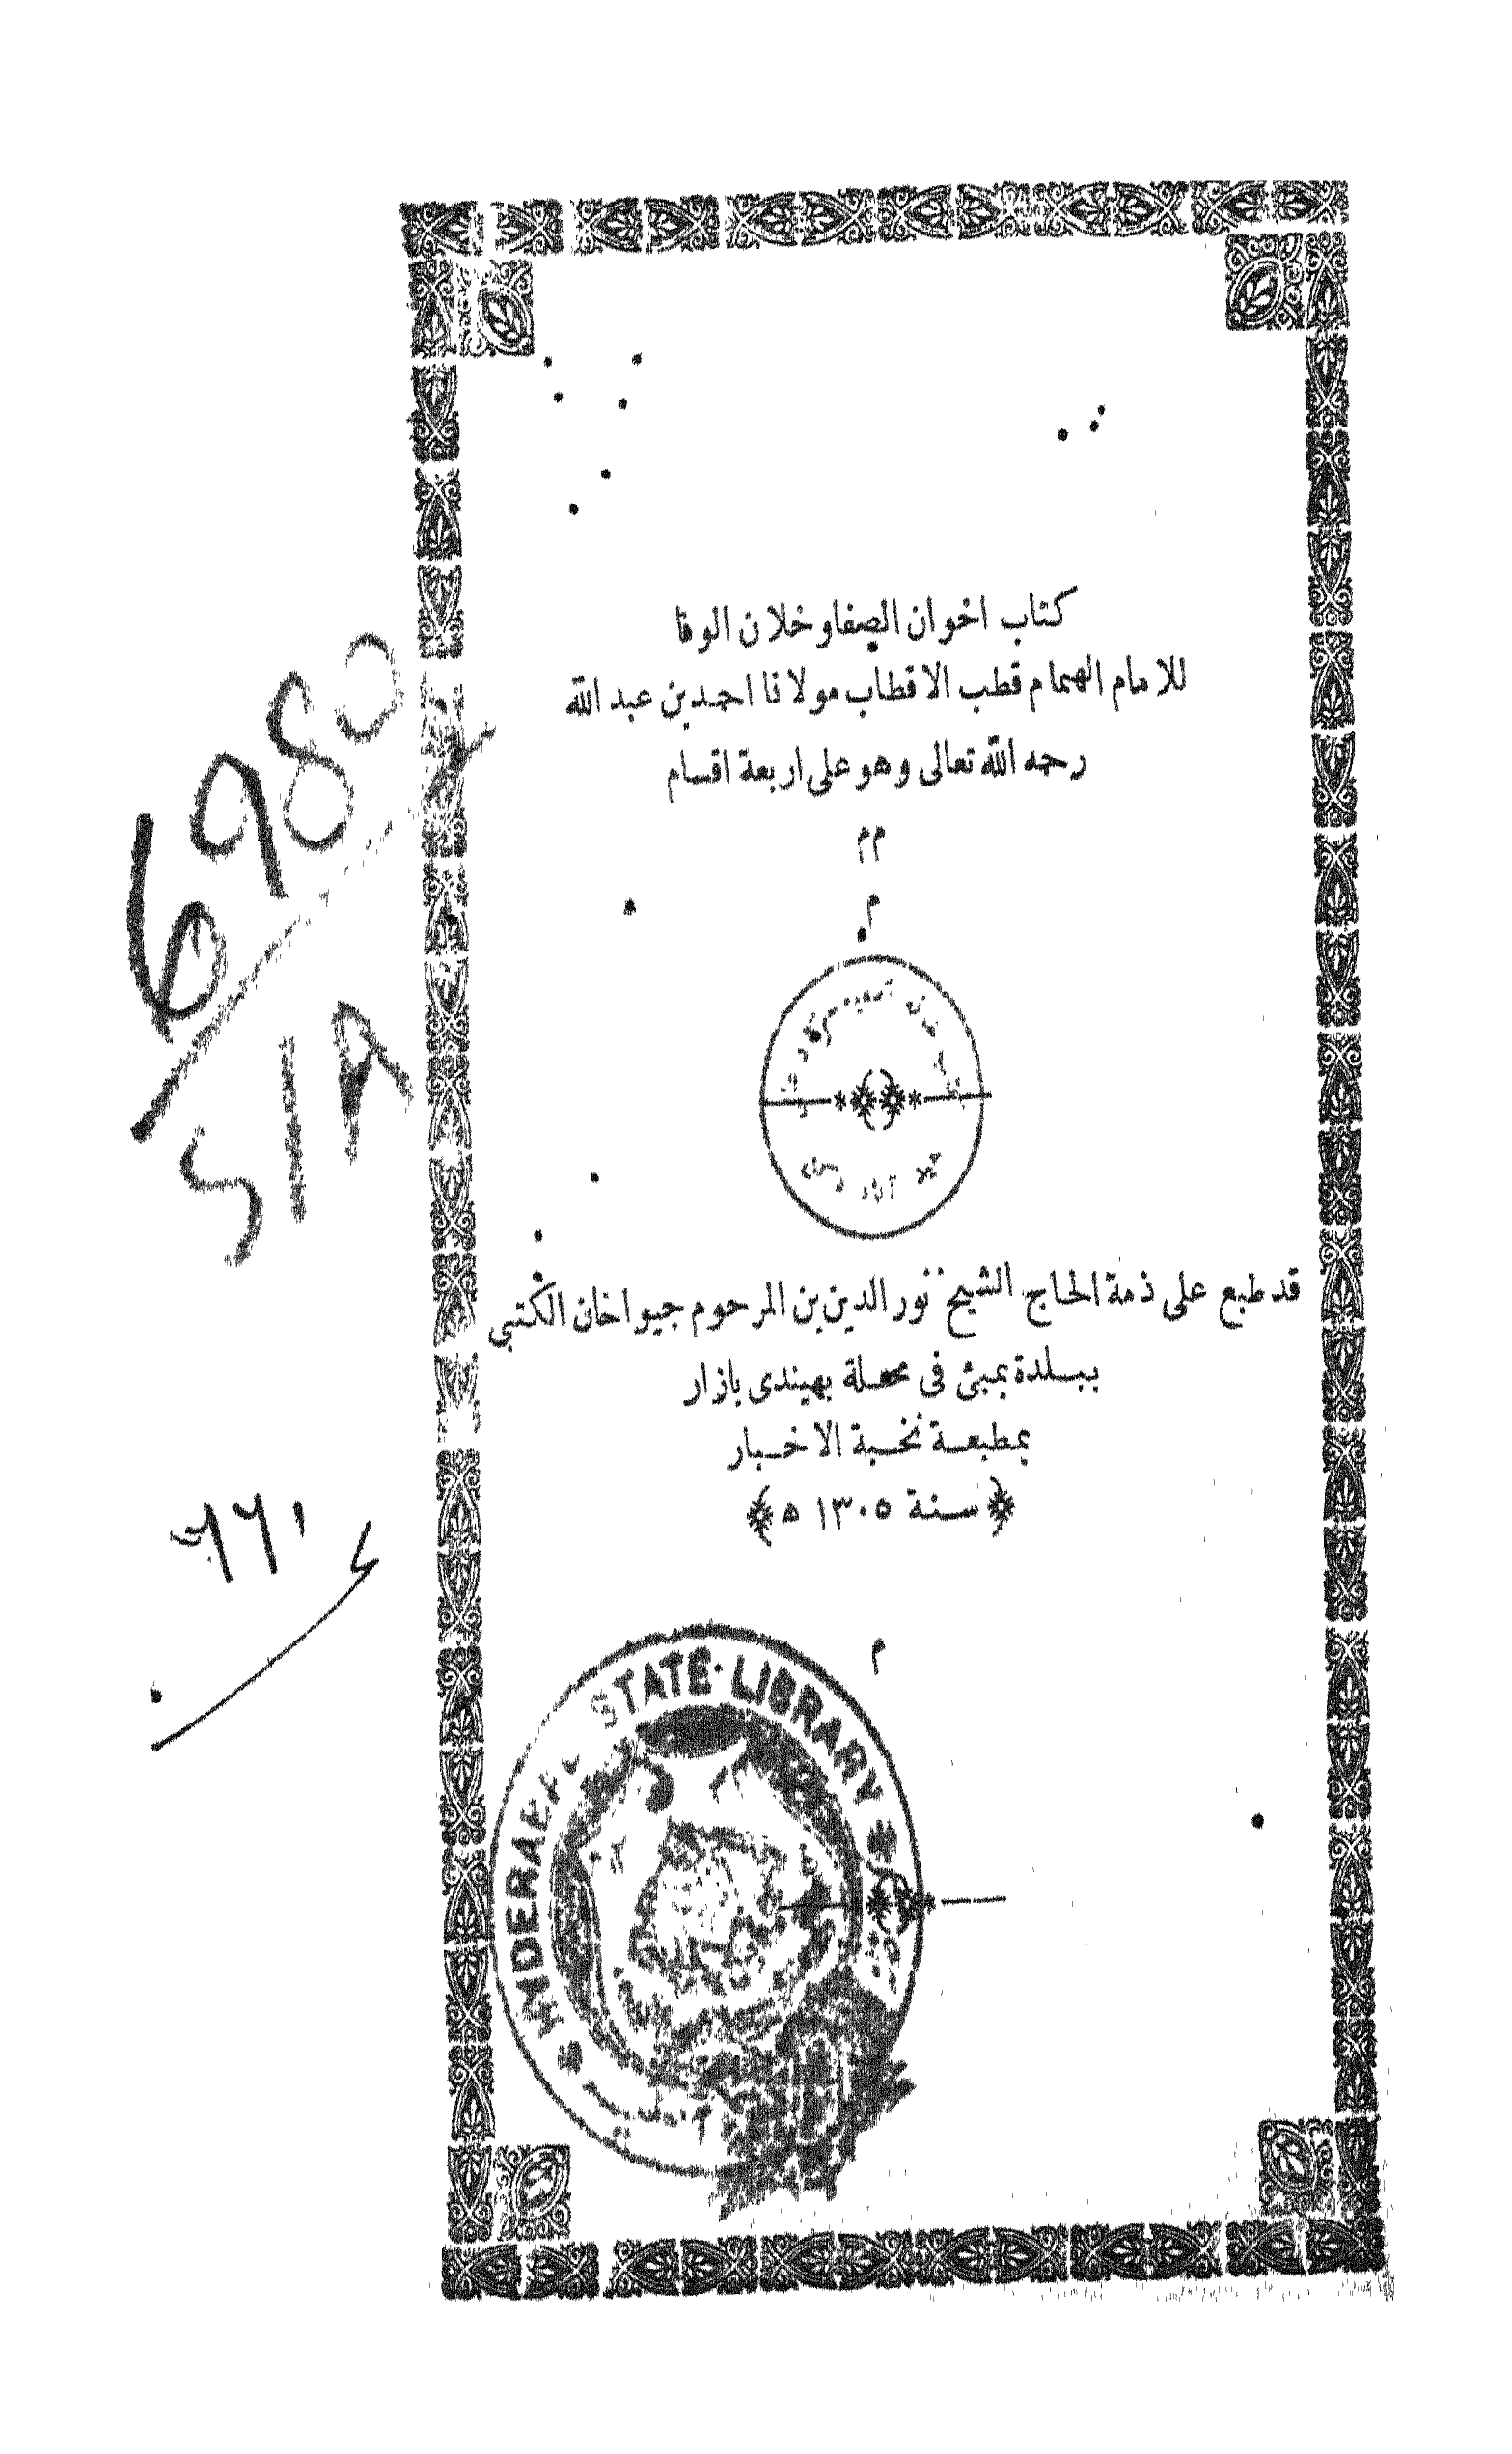 كتاب اخوان الصفا و خلان الوفا
للامام الهمام قطب الاقطاب مولانا احمد بن عبد الله
رحمه الله تعالى وهو على اربعة اقسام
م م
م
قد طبع على ذمة الحاج الشيخ نور الدين بن المرحوم جيواخان الكتبي
ببلدة بمبئ فى محلة بهيندى بازار
بمطبعة نخبة الاخبار
سنة ١٣٠٥ ه
م
STATE LIBRARY
6980